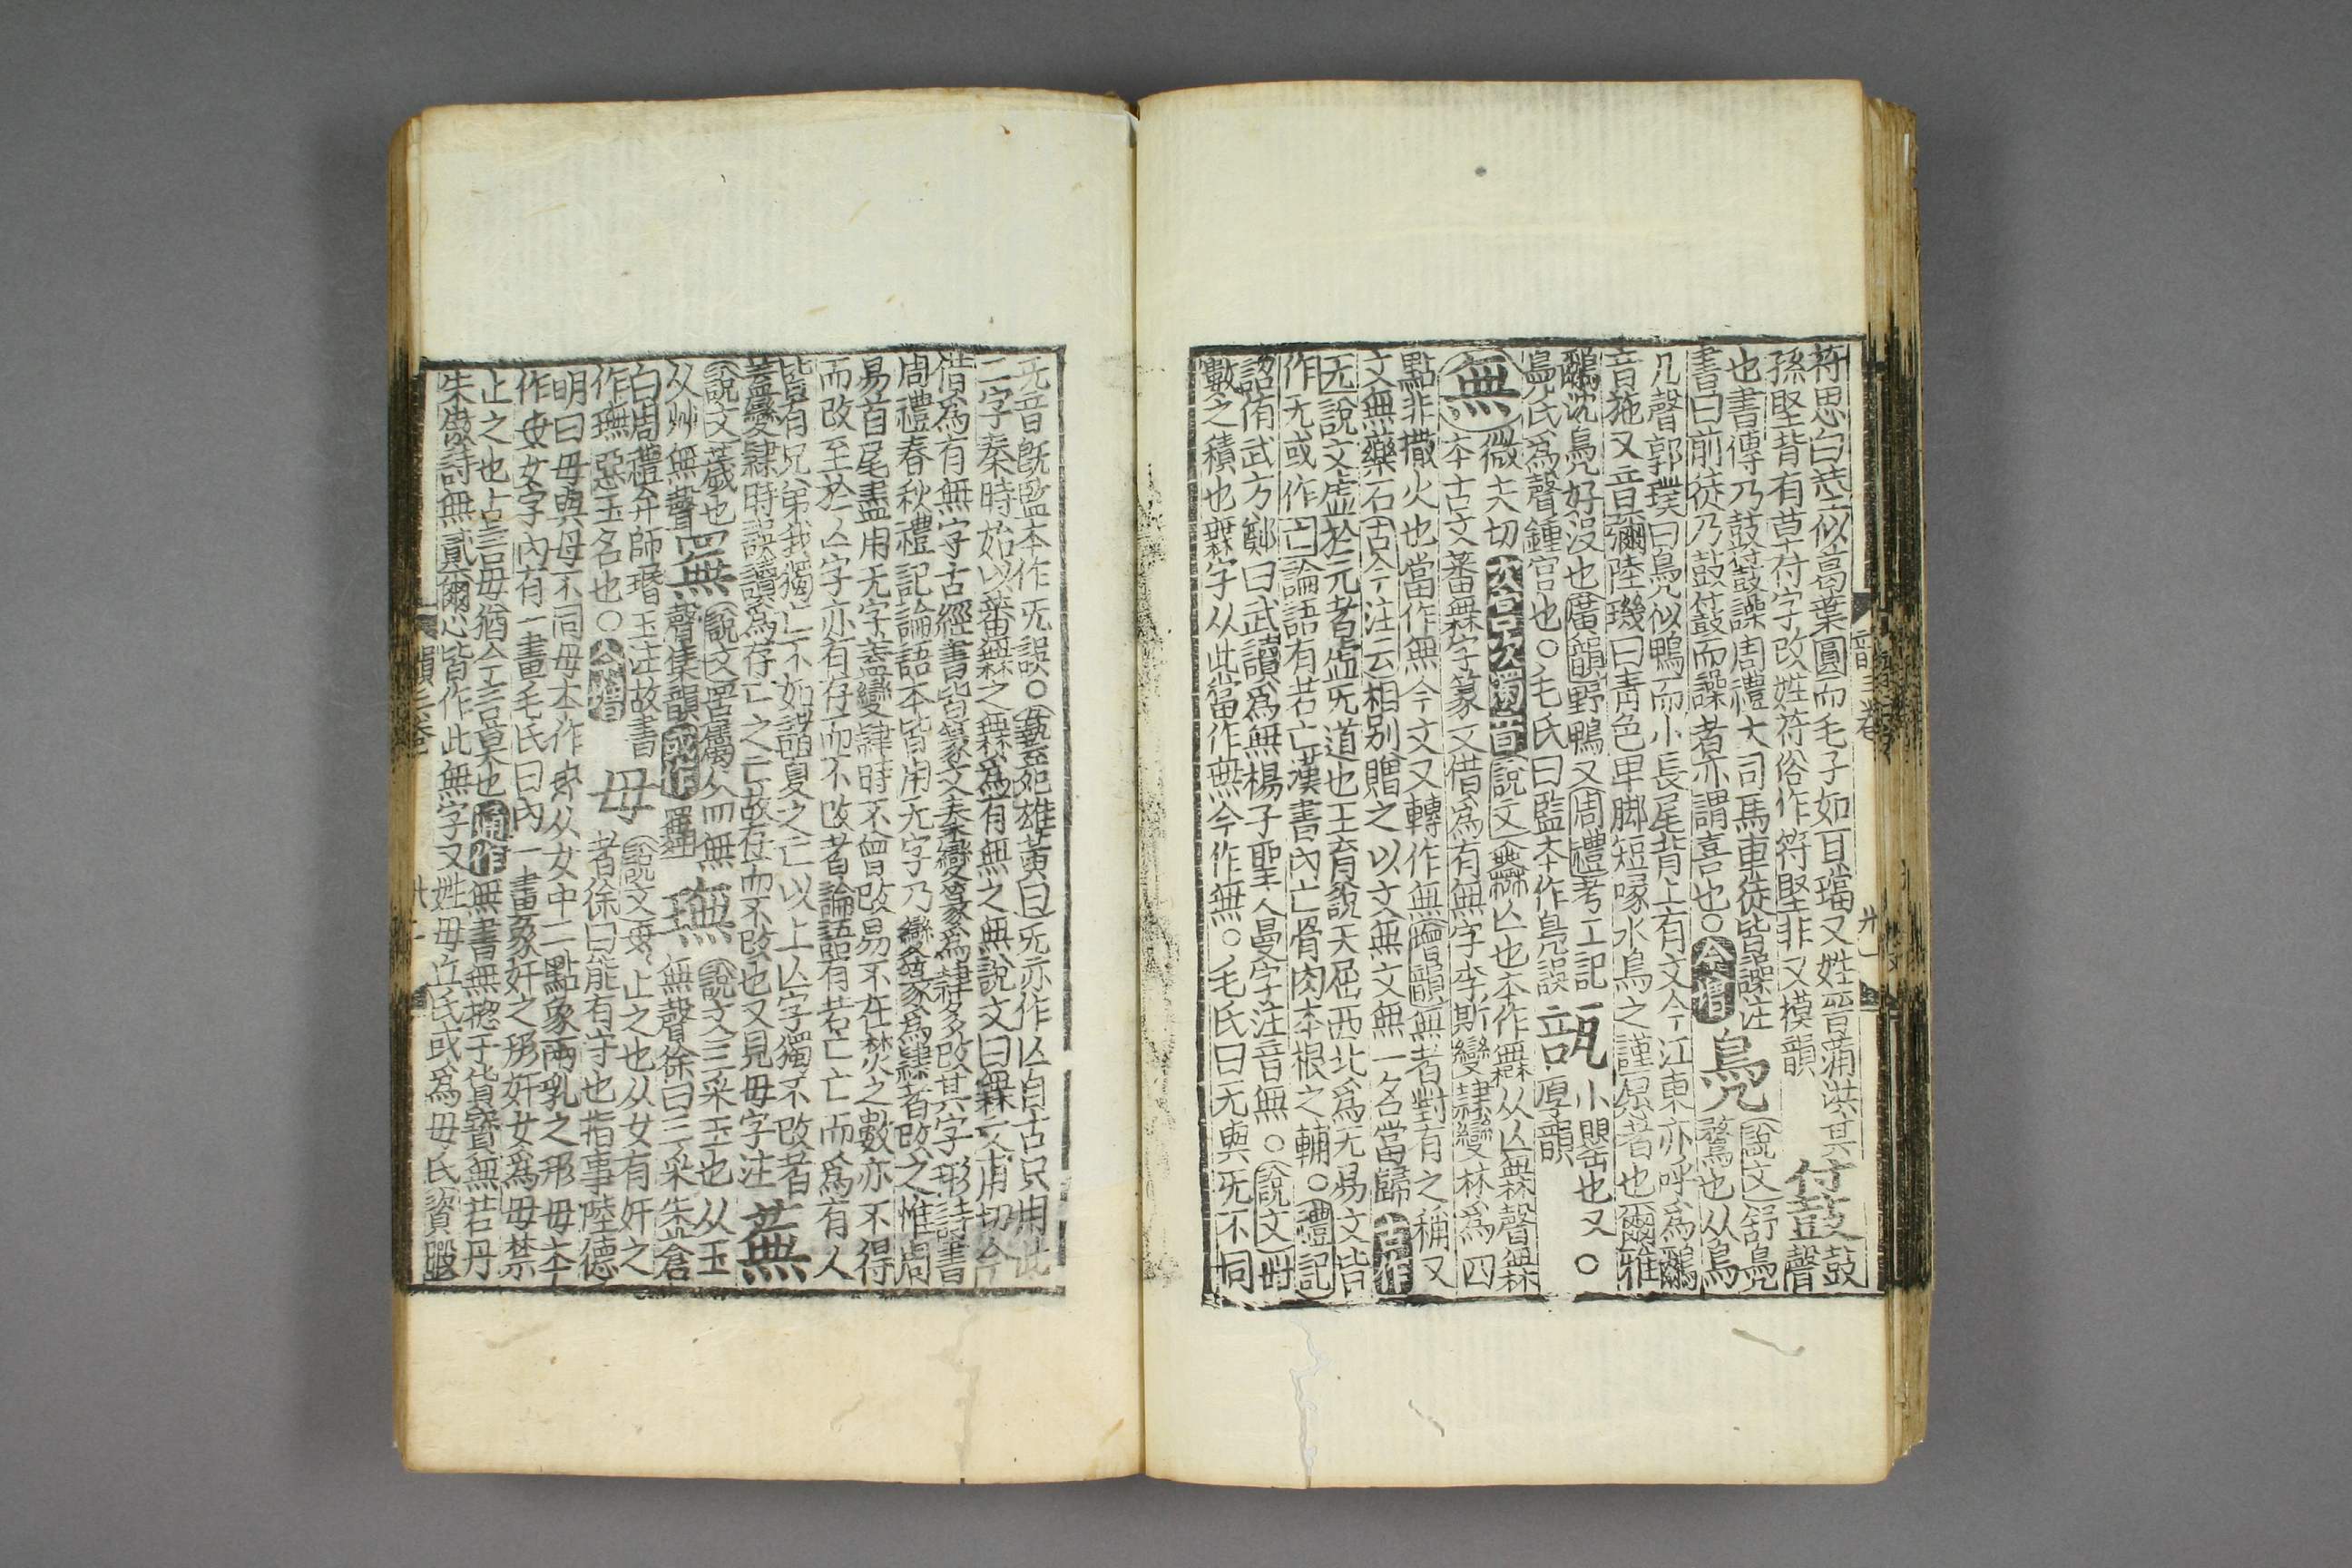 苻思曰恭忩似葛葉圓而毛子如耳璫又姓晉蒲洪其
孫堅背有草付字改姓苻俗作符堅非又模韻
鼖
鼓聲
也書傳乃鼓鼖譟周禮大司馬車徒皆譟注
書曰前徒乃鼓鼖而譟者亦謂喜也○今增
鳧
說文舒鳧
鶩也从鳥
几聲郭璞曰鳧似鴨而小長尾背上有文今江東亦呼爲鸍
音施又音彌陸璣曰青色卑脚短喙水鳥之謹愿者也爾雅
鸍沈鳧好沒也廣韻野鴨又周禮考工記
鳧氏爲聲鍾官也○毛氏曰監本作鳧誤
瓿
小甖也又
厚韻
○
無
微夫切
次宮次濁音
說文無亡也本作𣠮从亡無聲𣠮
本古文蕃𣞤字篆文借爲有無字李斯變隸變林爲四
點非撒火也當作無今文又轉作無增韻無者對有之稱又
文無藥石古今注云相別贈之以文無文無一名當歸古作
无說文虛旡元者虛旡道也王育說天屈西北爲无易文皆
作无或作亡論語有若亡漢書內亡骨肉本根之輔○禮記
詔侑武方鄭曰武讀爲無楊子聖人曼字注音無○說文卌
數之積也𣞤字从此當作𣞤今作無○毛氏曰无與旡不同
旡音旣監本作旡誤○藝苑雄黃曰旡亦作亡自古只用此
二字秦時始以蕃𣞤之𣞤爲有無之無說文曰𣞤文甫切今
借爲有無字古經書皆篆文夫秦變篆爲隸多改其字形詩書
周禮春秋禮記論語本皆用无字乃變篆爲隸者改之惟周
易首尾盡用无字蓋變隸時不曾改易不在焚之數亦不得
而改至於亡字亦有存而不改者論語有若亡亡而爲有人
皆有兄弟我獨亡不如諸夏之亡以上亡字獨不改者
蓋變隸時誤讀爲存亡之亡故存而不改也又見毋字注
蕪
說文薉也
从艸無聲
𦋝
說文罟屬从罒無
聲集韻或作𦌬
璑
說文三采玉也从玉
無聲徐曰三采朱蒼
白周禮弁師瑉玉注故書
作璑惡玉名也○今增
毋
說文毋止之也从女有奸之
者徐曰能有守也指事陸德
明曰毋與母不同母本作𣫭从女中二點象兩乳之形毋本
作毌女字內有一畫毛氏曰內一畫象奸之形奸女爲毋禁
止之也古言毋猶今言莫也通作無書無總于貨寶無若丹
朱傲詩無貳爾心皆作此無字又姓毋丘氏或爲毋氏資暇